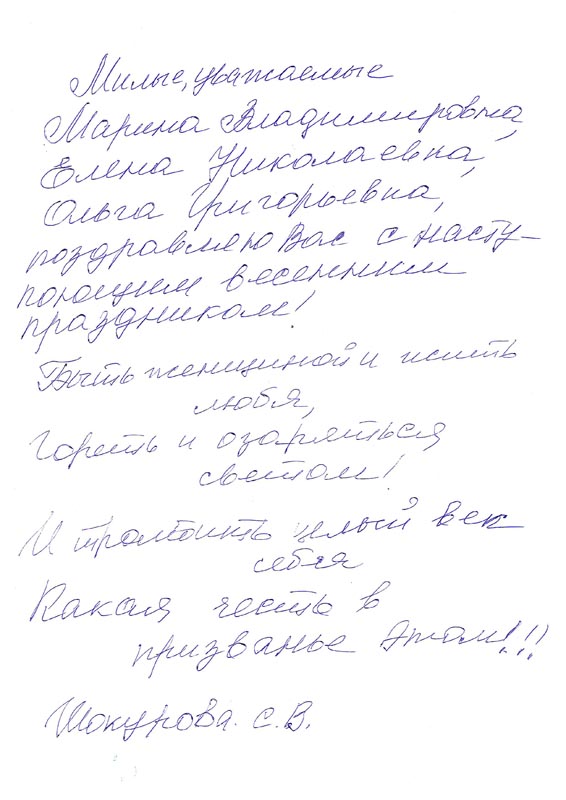 Милые, уважаемые
Марина Владимировна,
Елена Николаевна,
Ольга Григорьевна,
поздравляю Вас с насту-
пающим весенним
праздником!
Быть женщиной и жить
любя,
Гореть и озаряться
светом!
И тратить целый век
себя
Какая честь в
призванье этом!!!
Шокурова. С.В.